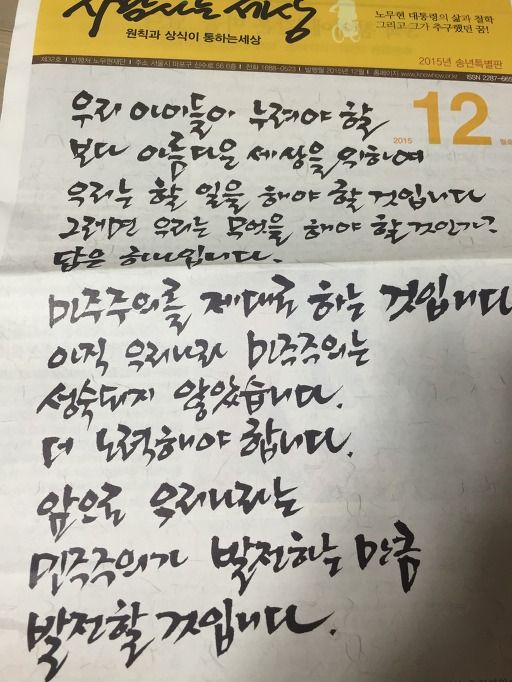 사람사는 세상
원칙과 상식이 통하는세상
노무현 대통령의 삶과 철학
그리고 그가 추구했던 꿈!
2015년 송년특별판
제32호 | 발행처 노무현재단 | 주소 서울시 마포구 신수로 56 6층 | 전화 1688-0523 | 발행월 2015년 12월 | 홈페이지 www.knowhow.or.kr ISSN 2287-665
2015 12
우리 아이들이 누려야 할
보다 아름다운 세상을 위하여
우리는 할 일을 해야 할 것입니다
그러면 우리는 무엇을 해야 할것인가?
답은 하나입니다.
민주주의를 제대로 하는 것입니다
아직 우리나라 민주주의는
성숙되지 않았습니다.
더 노력해야 합니다.
앞으로 우리나라는
민주주의가 발전하는 만큼
발전할 것입니다.